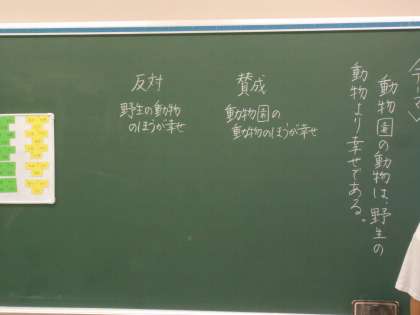 動物園の動物は、野生の
動物より幸せである。
賛成
動物園の
動物のほうが幸せ
反対
野生の動物
のほうが幸せ